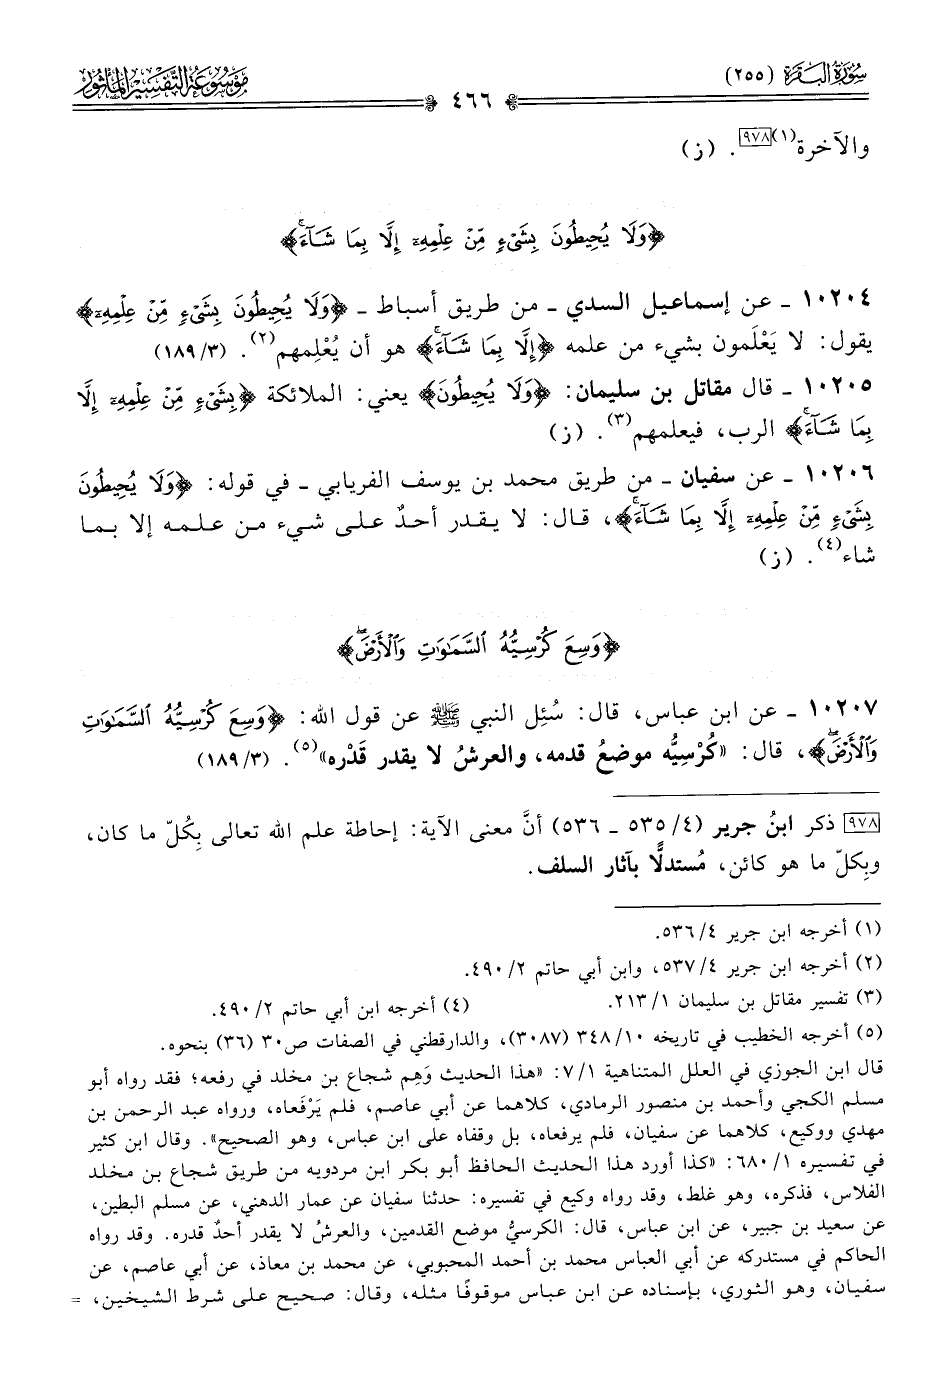 سُورَةُ البَقَرَةِ (٢٥٥)
٤٦٦
مَوْسُوعَةُ التَّفْسِيرِ المَأْثُور
والآخرة(١)[٩٧٨]. (ز)
﴿وَلَا يُحِيطُونَ بِشَىْءٍ مِّنْ عِلْمِهِۦٓ إِلَّا بِمَا شَآءَۚ﴾
١٠٢٠٤ ـ عن إسماعيل السدي ـ من طريق أسباط ـ ﴿وَلَا يُحِيطُونَ بِشَىْءٍ مِّنْ عِلْمِهِۦٓ﴾
يقول: لا يَعْلَمون بشيء من علمه ﴿إِلَّا بِمَا شَآءَۚ﴾ هو أن يُعْلِمهم(٢). (٣/ ١٨٩)
١٠٢٠٥ ـ قال مقاتل بن سليمان: ﴿وَلَا يُحِيطُونَ﴾ يعني: الملائكة ﴿بِشَىْءٍ مِّنْ عِلْمِهِۦٓ إِلَّا
بِمَا شَآءَۚ﴾ الرب، فيعلمهم(٣). (ز)
١٠٢٠٦ ـ عن سفيان ـ من طريق محمد بن يوسف الفريابي ـ في قوله: ﴿وَلَا يُحِيطُونَ
بِشَىْءٍ مِّنْ عِلْمِهِۦٓ إِلَّا بِمَا شَآءَۚ﴾، قال: لا يقدر أحدٌ على شيء من علمه إلا بما
شاء(٤). (ز)
﴿وَسِعَ كُرْسِيُّهُ السَّمَـٰوَٰتِ وَٱلْأَرْضَۖ﴾
١٠٢٠٧ ـ عن ابن عباس، قال: سُئِل النبي ﷺ عن قول الله: ﴿وَسِعَ كُرْسِيُّهُ ٱلسَّمَـٰوَٰتِ
وَٱلْأَرْضَۖ﴾، قال: «كُرْسِيُّه موضعُ قدمه، والعرشُ لا يقدر قَدْره»(٥). (٣/ ١٨٩)
[٩٧٨] ذكر ابنُ جرير (٤/ ٥٣٥ ـ ٥٣٦) أنَّ معنى الآية: إحاطة علم الله تعالى بِكُلّ ما كان،
وبِكلّ ما هو كائن، مُستدلًّا بآثار السلف.
(١) أخرجه ابن جرير ٤/ ٥٣٦.
(٢) أخرجه ابن جرير ٤/ ٥٣٧، وابن أبي حاتم ٢/ ٤٩٠.
(٣) تفسير مقاتل بن سليمان ١/ ٢١٣. (٤) أخرجه ابن أبي حاتم ٢/ ٤٩٠.
(٥) أخرجه الخطيب في تاريخه ١٠/ ٣٤٨ (٣٠٨٧)، والدارقطني في الصفات ص٣٠ (٣٦) بنحوه.
قال ابن الجوزي في العلل المتناهية ١/ ٧: «هذا الحديث وَهِم شجاع بن مخلد في رفعه؛ فقد رواه أبو
مسلم الكجي وأحمد بن منصور الرمادي، كلاهما عن أبي عاصم، فلم يَرْفَعاه، ورواه عبد الرحمن بن
مهدي ووكيع، كلاهما عن سفيان، فلم يرفعاه، بل وقفاه على ابن عباس، وهو الصحيح». وقال ابن كثير
في تفسيره ١/ ٦٨٠: «كذا أورد هذا الحديث الحافظ أبو بكر ابن مردويه من طريق شجاع بن مخلد
الفلاس، فذكره، وهو غلط، وقد رواه وكيع في تفسيره: حدثنا سفيان عن عمار الدهني، عن مسلم البطين،
عن سعيد بن جبير، عن ابن عباس، قال: الكرسيُّ موضع القدمين، والعرشُ لا يقدر أحدٌ قدره. وقد رواه
الحاكم في مستدركه عن أبي العباس محمد بن أحمد المحبوبي، عن محمد بن معاذ، عن أبي عاصم، عن
سفيان، وهو الثوري، بإسناده عن ابن عباس موقوفًا مثله، وقال: صحيح على شرط الشيخين، =